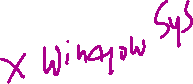 X Window Sys